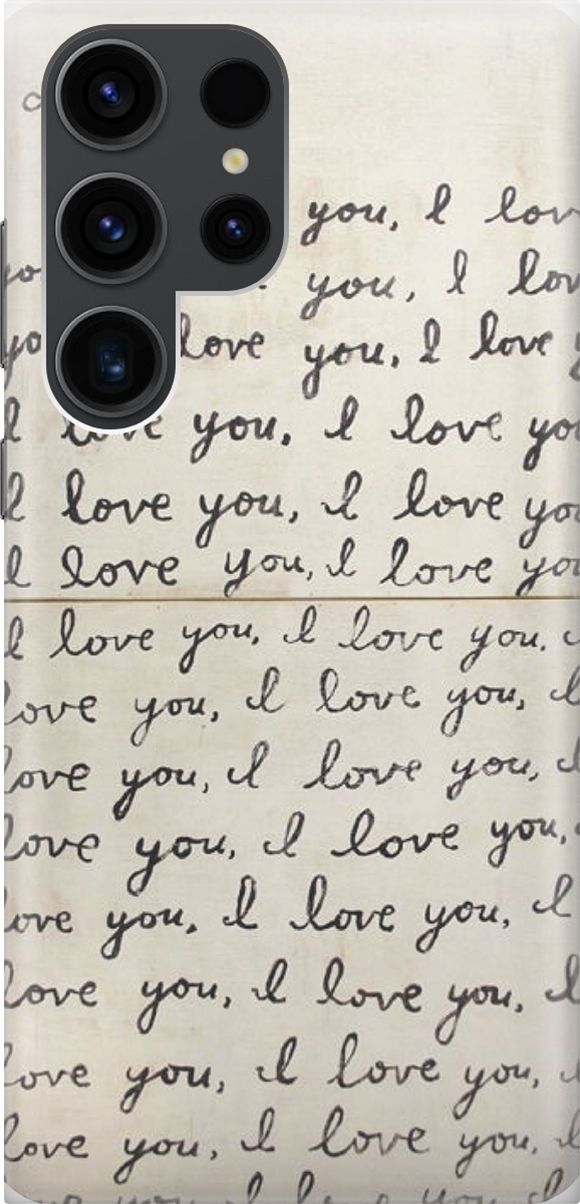 you, I lov
yo you, I lov
yo love you, I love y
I love you, I love you
I love you, I love you
I love you, I love you
I love you, I love you,
love you, I love you, I
love you, I love you, I
love you, I love you,
ove you, I love you, I
love you, I love you, I
love you, I love you,
love you, I love you, I
you I love you I